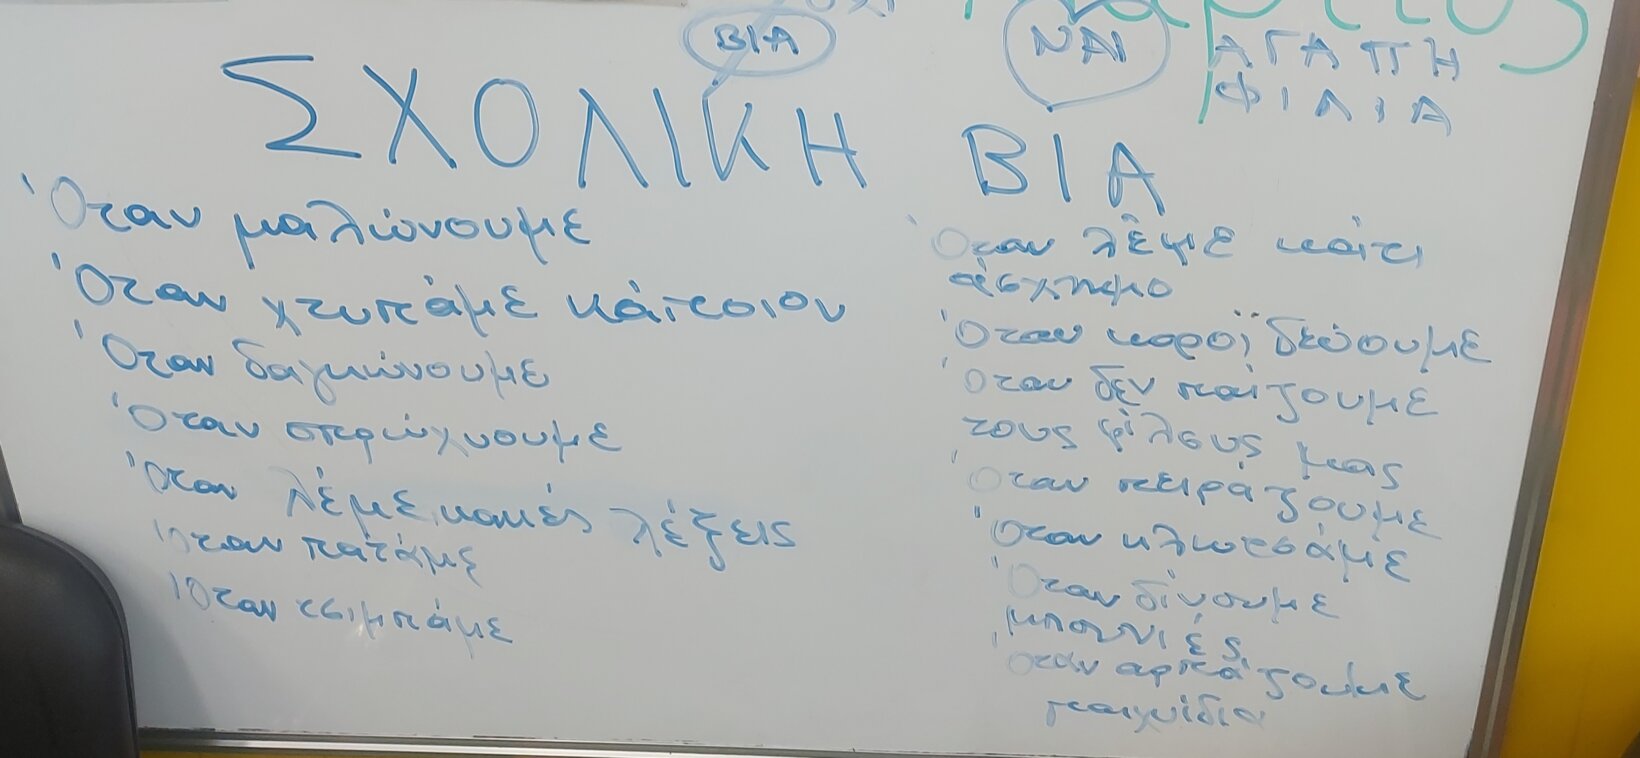 ΌΧΙ
Μάρτιος
ΒΙΑ
ΝΑΙ
ΑΓΑΠΗ
ΦΙΛΙΑ
ΣΧΟΛΙΚΗ ΒΙΑ
Όταν μαλώνουμε
Όταν χτυπάμε κάποιον
Όταν δαγκώνουμε
Όταν σπρώχνουμε
Όταν λέμε κακές λέξεις
Όταν πατάμε
Όταν τσιμπάμε
Όταν λέμε κάτι
άσχημο
Όταν κοροϊδεύουμε
Όταν δεν παίζουμε
τους φίλους μας
Όταν πειράζουμε
Όταν κλωτσάμε
Όταν δίνουμε
μπουνιές
Όταν αρπάζουμε
παιχνίδια